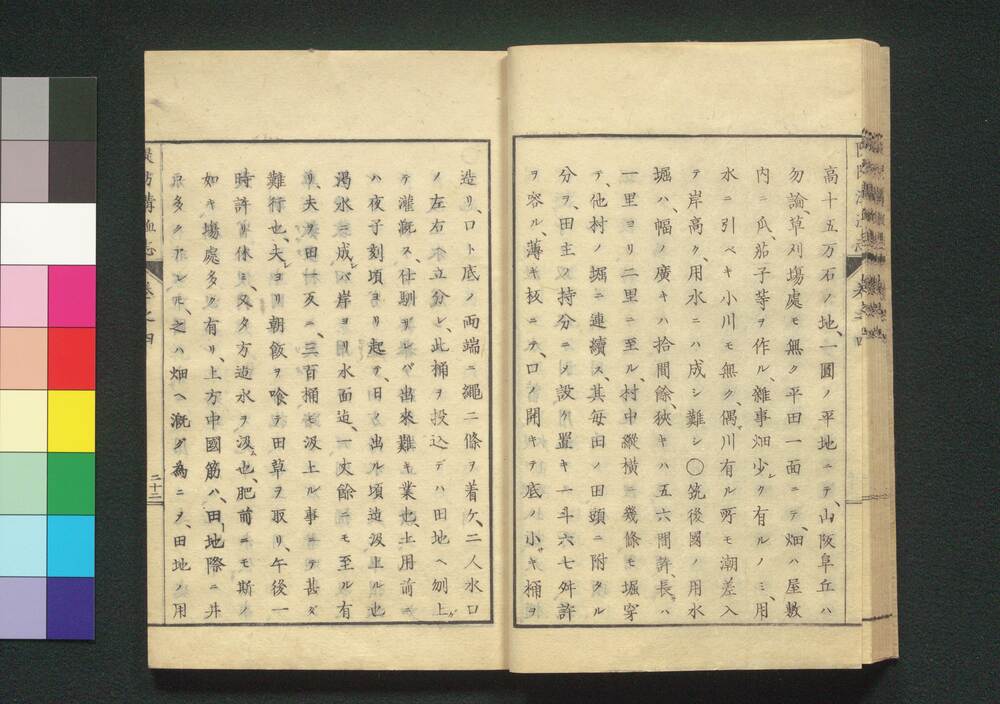 高十五万石ノ地、一圓ノ平地ニテ、山阪阜丘ハ
勿論、草刈塲處モ無ク平田一面ニテ、畑ハ屋敷
内ニ瓜、茄子等ヲ作ル、雜事畑少ク有ルノミ、用
水ニ引ベキ小川モ無ク、偶川有ル所モ潮差入
テ岸高ク、用水ニハ成シ難シ〇筑後國ノ用水
堀ハ、幅ノ廣キハ拾間餘、狹キハ五六間許、長ハ
一里ヨリ二里ニ至ル、村中縱橫ニ幾條モ堀穿
テ、他村ノ堀ニ連續ス、其毎田ノ田頭ニ附タル
分ヲ、田主ノ持分ニメ設ケ置キ一斗六七舛許
ヲ容ル、薄キ板ニテ、口ノ開キテ底ノ小キ桶ヲ
造リ、口ト底ノ両端ニ繩二條ヲ着ケ、二人水口
ノ左右ニ立分レ、此桶ヲ投込デハ田地ヘ刎上
テ灌漑ス、仕馴ザレバ出來難キ業也、土用前ニ
ハ夜子刻頃ヨリ起テ、日ノ出ル頃迠汲上ル也
渇水ニ成バ岸ヨリ水面迠、一丈餘ニモ至ル有
リ、夫ヲ田一反ニ、三百桶モ汲上ル事ニテ甚ダ
難行也、夫ヨリ朝飯ヲ喰テ田草ヲ取リ、午後一
時許リ休ミ、又タ方迠水ヲ汲也、肥前ニモ斯ノ
如キ塲處多ク有リ、上方中國筋ハ、田地際ニ井
戸多クアレ𪜈、之ハ畑ヘ漑グ為ニメ、田地ノ用
二十二